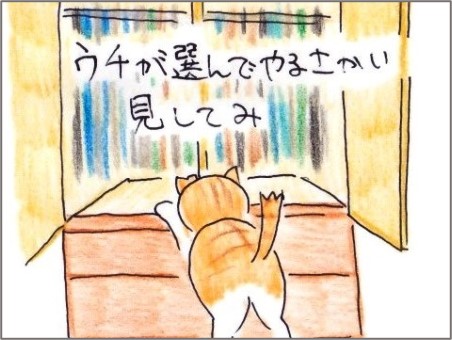 ウチが選んでやるさかい
見してみ